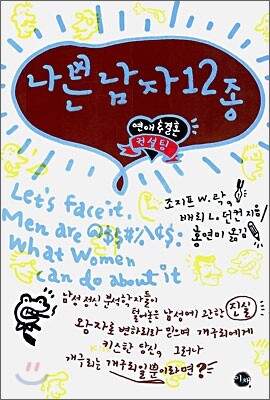 나쁜 남자 12종
연애 후 결혼
컨설팅
Let's face it.
조지프 W. 락,
Men are @$$#%\¢$:
배리 L. 던컨 지음
What Women
홍연미 옮김
can do about it
남성 정신 분석학자들이
털어놓은 남성에 관한 진실
왕자로 변하리라 믿으며 개구리에게
키스한 당신, 그러나
개구리는 개구리일뿐이라면?
yes24